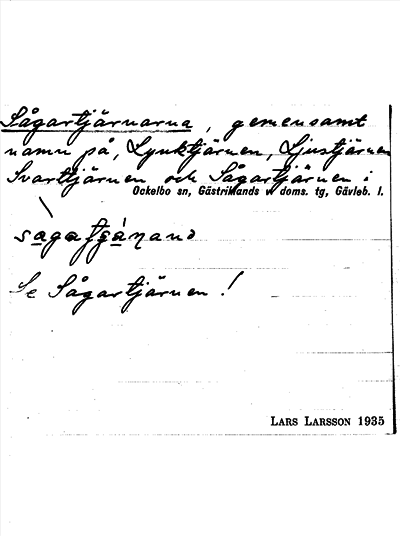 Sågartjärnarna, gemensamt
namn på, Lynktjärnen, Ljustjärnen
Svarttjärnen och Sågartjärnen i
Ockelbo sn, Gästriklands v doms. tg, Gävleb. l.
Se Sågartjärnen!
LARS LARSSON 1935